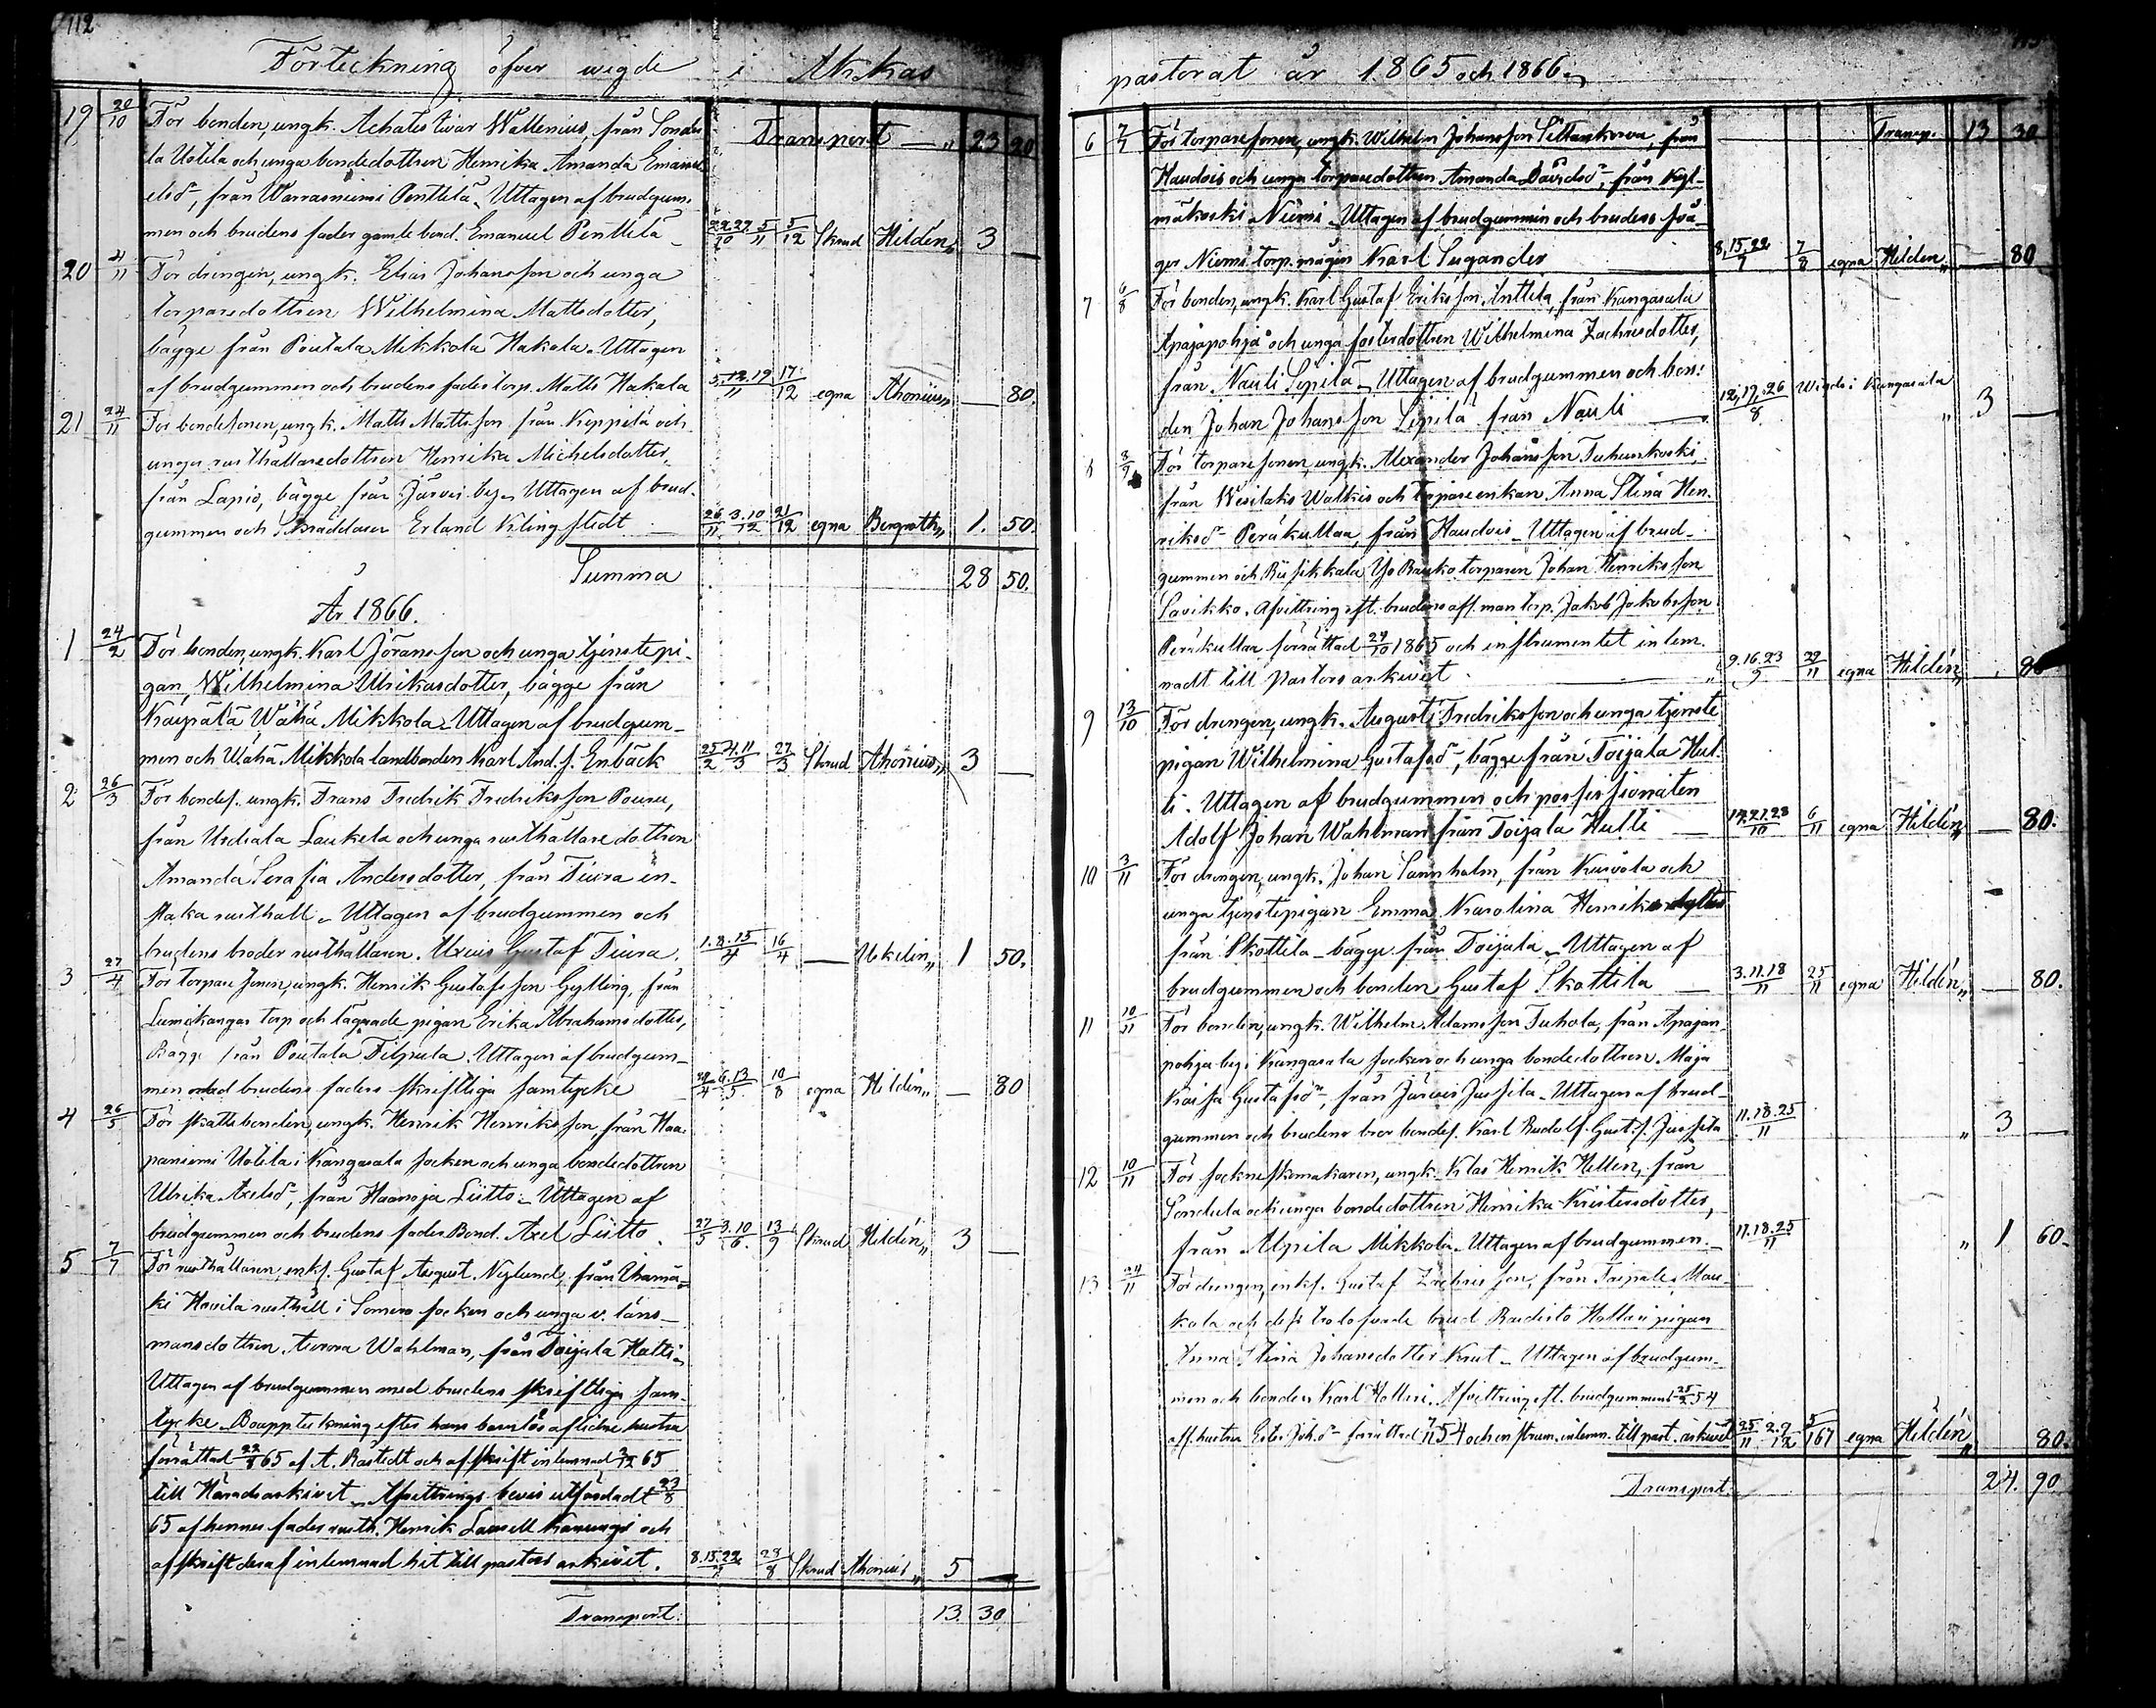 112
Förteckning öfver wigde i Akkas
19 20/10 För bonden, ungk. Achates Ivar Wallenius, från Sondu
la Uotila och unga bondedottren Henrika Amanda Emanu
elsdr, från Warrasniemi Penttilä. Uttagen af brudgum-
men och brudens fader gamle bond. Emanuel Penttilä 22.29/10 5/11 5/12 Skrud Hildén „ 3 —
Transport — „ 23 20
20 4/11 För drengen, ungk. Elias Johansson och unga
torparedottren Wilhelmina Mattsdotter,
bägge från Poutala Mikkola Hakala. Uttagen
af brudgummen och brudens fader torp. Matts Hakala 5.12.19/11 17/12 egna Ahonius „ — 80.
21 24/11 För bondesonen, ungk. Matts Mattsson från Keppilä och
unga rusthållaredottren Henrika Michelsdotter,
från Lapio, bägge från Järvis by. Uttagen af brud-
gummen och Skräddaren Erland Klingstedt 26/11 3.10/12 21/12 egna Bergroth „ 1. 50.
Summa 28 50.
År 1866.
1 24/2 För bonden, ungk. Karl Göransson och unga tjenstepi-
gan, Wilhelmina Ulrikasdotter, bägge från
Wähä Mikkola. Uttagen af brudgum-
men och Wähä Mikkola landbonden Karl And. s. Enbäck 25/2 4.11/3 27/3 Skrud Ahonius „ 3 —
2 26/3 För bondes. ungk. Frans Fredrik Fredriksson Pouru,
från Urdiala Laukela och unga rusthållare dottren
Amanda Serafia Andersdotter, från Tiura en-
staka rusthåll. Uttagen af brudgummen och
brudens broder rusthållaren Gustaf Tiura. 1.8.15/4 16/4 — „ 1 50.
3 27/4 För torpare sonen, ungk. Henrik Gustafsson Gylling, från
Lumikangas torp och pigan Erika Abrahamsdotter,
Bägge från Poutala Filpula. Uttagen af brudgum-
men med brudens faders skriftliga samtycke 29/4 6.13/5 10/8 egna Hildén „ — 80
4 26/5 För skattebonden, ungk. Henrik Henriksson, från Haa-
paniemi Uotila i Kangasala socken och unga bondedottren
Ulrika Axelsdr, från Haanoja Liitto. Uttagen af
brudgummen och brudens fader Bond. Axel Liitto. 27/5 3.10/6. 13/9 Skrud Hildén „ 3 —
5 7/7 För rusthållaren, enkl. Gustaf August Nylund, från
Hovila rusthåll i Somero socken och unga v. läns-
mansdottren Aurora Wahlman, från Toijala Hutti.
Uttagen af brudgummen med brudens skriftliga sam-
tycke. Boupptekning efter hans barnlös aflidne hustru
förrättad 22/8 65 af A. Råstedt och afskrift inlemnad 3/12 65
till Häradsarkivet. Afvittrings bevis utfärdadt 23/8
65 af hennes fader rusth. Henrik och
afskrift deraf inlemnad hit till pastors arkivet. 8.15.22/7 28/8 Skrud Ahonius „ 5 —
Transport: 13. 30
pastorat år 1865 och 1866.
Transp. 13 30
6 7/7 För torparesonen, ungk. Wilhelm Johansson Siltankorva, från
Haudois och unga torparedottren Amanda Davidsdr, från Kyl-
mäkoski Niemi. Uttagen af brudgummen och brudens
Niemi torp. mågen Karl Sugander 8,15,22/7 7/8 egna Hildén „ — 80
7 6/8 För bonden, ungk. Karl Gustaf Eriksson Anttila, från Kangasala
Apajapohja och unga fosterdottren Wilhelmina Zachrisdotter,
från Nauli Sipilä. Uttagen af brudgummen och bon-
den Johan Johansson Sipilä från Nauli 12,17,26/8 Wigde i Kangasala „ 3 —
8 8/9 För torparesonen, ungk. Alexander Johansson Tuhunkoski,
från Wesilaks Walkis och torpareenkan Anna Stina Hen-
riksdr Peräkullaa, från Haudois. Uttagen af brud-
gummen och Riisikkala Yli Rauko torparen Johan Henriksson
Savikko. Afvittring eft. brudens afl. man torp. Jakob Jakobsson
Peräkullaa förrättad 24/10 1865 och instrumentet inlem-
nadt till pastors arkivet 9.16.23/9 29/11 egna Hildén „ — 80
9 13/10 För drengen, ungk. August Fredriksson och unga tjenste
pigan Wilhelmina Gustafsdr, bägge från Toijala Hut-
ti. Uttagen af brudgummen och possessionaten
Adolf Johan Wahlman från Toijala Hutti 14.21.28/10 6/11 egna Hildén „ — 80.
10 3/11 För drengen, ungk. Johan Sannholm, från Kurvola och
unga tjenstepigan Emma Karolina Henriksdotter
från Skottila — bägge från Toijala. Uttagen af
brudgummen och bonden Gustaf Skottila 3.11.18/11 25/11 egna Hildén „ — 80.
11 10/11 För bonden, ungk. Wilhelm Adamsson Tuhola, från Apajan-
pohja by i Kangasala socken och unga bondedottren Maja
Kaisa Gustafsdr, från Järvis Jussila. Uttagen af brud-
gummen och brudens bror bondes. Karl Rudolf Gust. s. Jussila 11.18.25/11 „ 3 —
12 10/11 För sockneskomakaren, ungk. Klas Henrik Hellén, från
Sondula och unga bondedottren Henrika Kristersdotter,
från Alpila Mikkola. Uttagen af brudgummen. 11.18.25/11 „ 1 60.
13 24/11 För drengen, enkl. Gustaf Zachrisson, från
och dess trolofvade brud Hollari pigan
Anna Stina Johansdotter Krut. Uttagen af brudgum-
men och bonden Karl Hollari. Afvittring eft. brudgummens 25/2 54
afl. hustru förrättad 7/11 54 och instrum. inlemn. till past. arkivet 25/11 2.9/12 5/1 67 egna Hildén „ 80.
Transport. 24. 90.